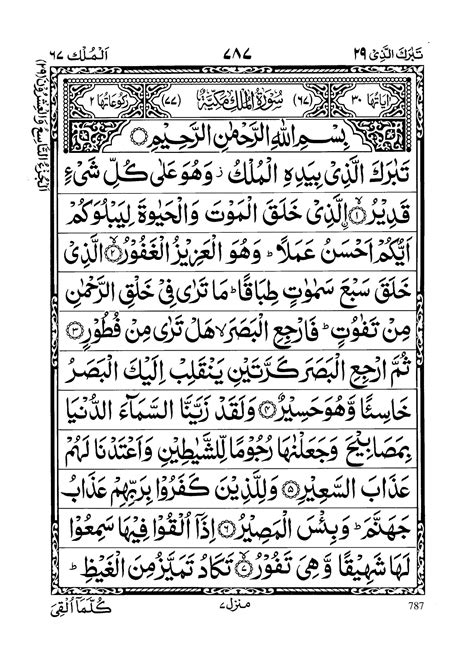 تَبٰرَكَ الَّذِیْ ٢٩
٧٨٧
اَلْمُلْك ٦٧
اٰیَاتُهَا ٣٠
(٦٧) سُوْرَةُ الْمُلْكِ مَكِّیَّةٌ (٧٧)
رُكُوْعَاتُهَا ٢
بِسْمِ اللّٰهِ الرَّحْمٰنِ الرَّحِیْمِ
تَبٰرَكَ الَّذِیْ بِیَدِهِ الْمُلْكُ ز وَهُوَ عَلٰی كُلِّ شَیْءٍ
قَدِیْرُ ۙ﴿١﴾ اِ۟لَّذِیْ خَلَقَ الْمَوْتَ وَالْحَیٰوةَ لِیَبْلُوَكُمْ
اَیُّكُمْ اَحْسَنُ عَمَلًا ؕ وَهُوَ الْعَزِیْزُ الْغَفُوْرُ ۙ﴿٢﴾ الَّذِیْ
خَلَقَ سَبْعَ سَمٰوٰتٍ طِبَاقًا ؕ مَا تَرٰی فِیْ خَلْقِ الرَّحْمٰنِ
مِنْ تَفٰوُتٍ ؕ فَارْجِعِ الْبَصَرَ ۙ هَلْ تَرٰی مِنْ فُطُوْرٍ ﴿٣﴾
ثُمَّ ارْجِعِ الْبَصَرَ كَرَّتَیْنِ یَنْقَلِبْ اِلَیْكَ الْبَصَرُ
خَاسِئًا وَّهُوَ حَسِیْرٌ ﴿٤﴾ وَلَقَدْ زَیَّنَّا السَّمَآءَ الدُّنْیَا
بِمَصَابِیْحَ وَجَعَلْنٰهَا رُجُوْمًا لِّلشَّیٰطِیْنِ وَاَعْتَدْنَا لَهُمْ
عَذَابَ السَّعِیْرِ ﴿٥﴾ وَلِلَّذِیْنَ كَفَرُوْا بِرَبِّهِمْ عَذَابُ
جَهَنَّمَ ؕ وَبِئْسَ الْمَصِیْرُ ﴿٦﴾ اِذَآ اُلْقُوْا فِیْهَا سَمِعُوْا
لَهَا شَهِیْقًا وَّهِیَ تَفُوْرُ ۙ﴿٧﴾ تَكَادُ تَمَیَّزُ مِنَ الْغَیْظِ ؕ
كُلَّمَآ اُلْقِیَ
منزل ٧
787